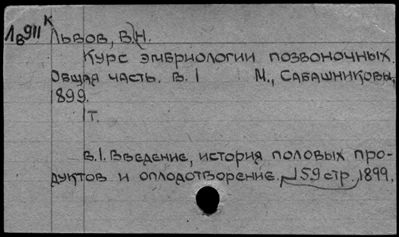 Лв911 К
Львов, В.Н.
Курс эмбриологии позвоночных.
Общая часть. В. 1 М., Сабашниковы,
1899.
1т.
в.1. Введение, история половых про-
дуктов и оплодотворение. 159 стр. 1899.